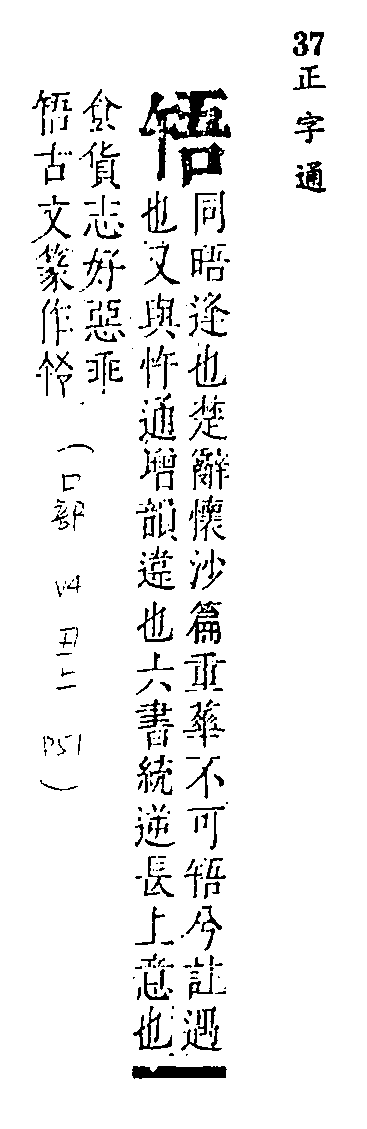 37 正字通
啎
同晤逢也楚辭懷沙篇重華不可啎兮註遇
也又與忤通增韻違也六書統逆長上意也
食貨志好惡乖
啎古文篆作
（口部 V4 丑上 P51）